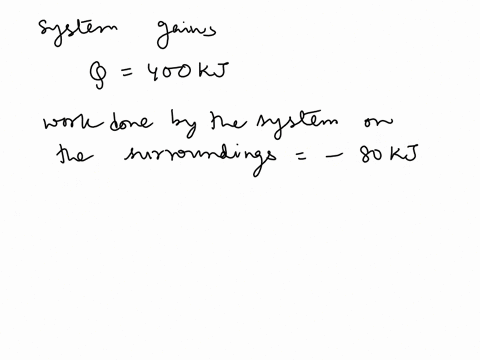 system gains
Q = 400 KJ
work done by the system on
the surroundings = - 80 KJ